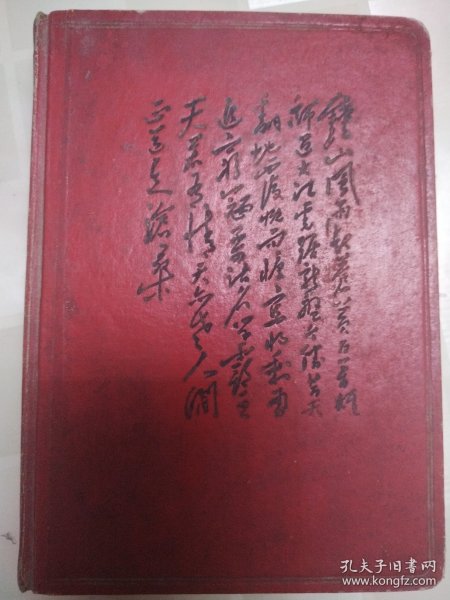 钟山风雨起苍黄百万雄
师过大江虎踞龙盘今胜昔天
翻地覆慨而慷宜将剩勇
追穷寇不可沽名学霸王
天若有情天亦老人间
正道是沧桑
孔夫子旧书网
www.kongfz.com